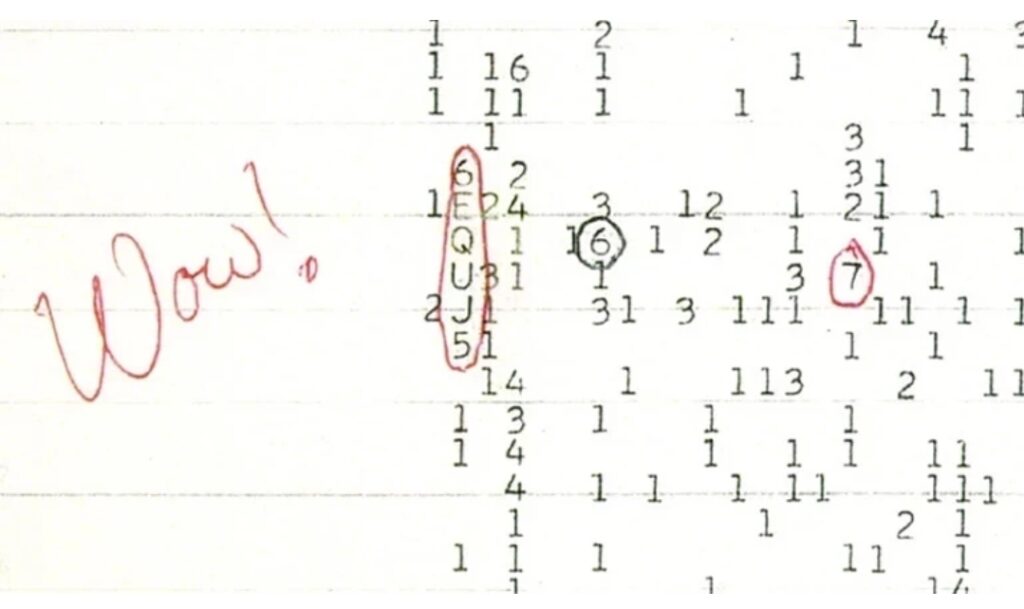 1 2 1 4 3
1 16 1 1 1
1 11 1 1 11 1
1 3 1
6 2 31
1 E24 3 12 1 21 1
Q 1 16 1 2 1 1 1
U31 1 3 7 1
2J1 31 3 111 11 1 1
51 1 1
14 1 113 2 11
1 3 1 1 1
1 4 1 1 1 11
4 1 1 1 11 111
1 1 2 1
1 1 1 11 1
1 1 14
Wow!